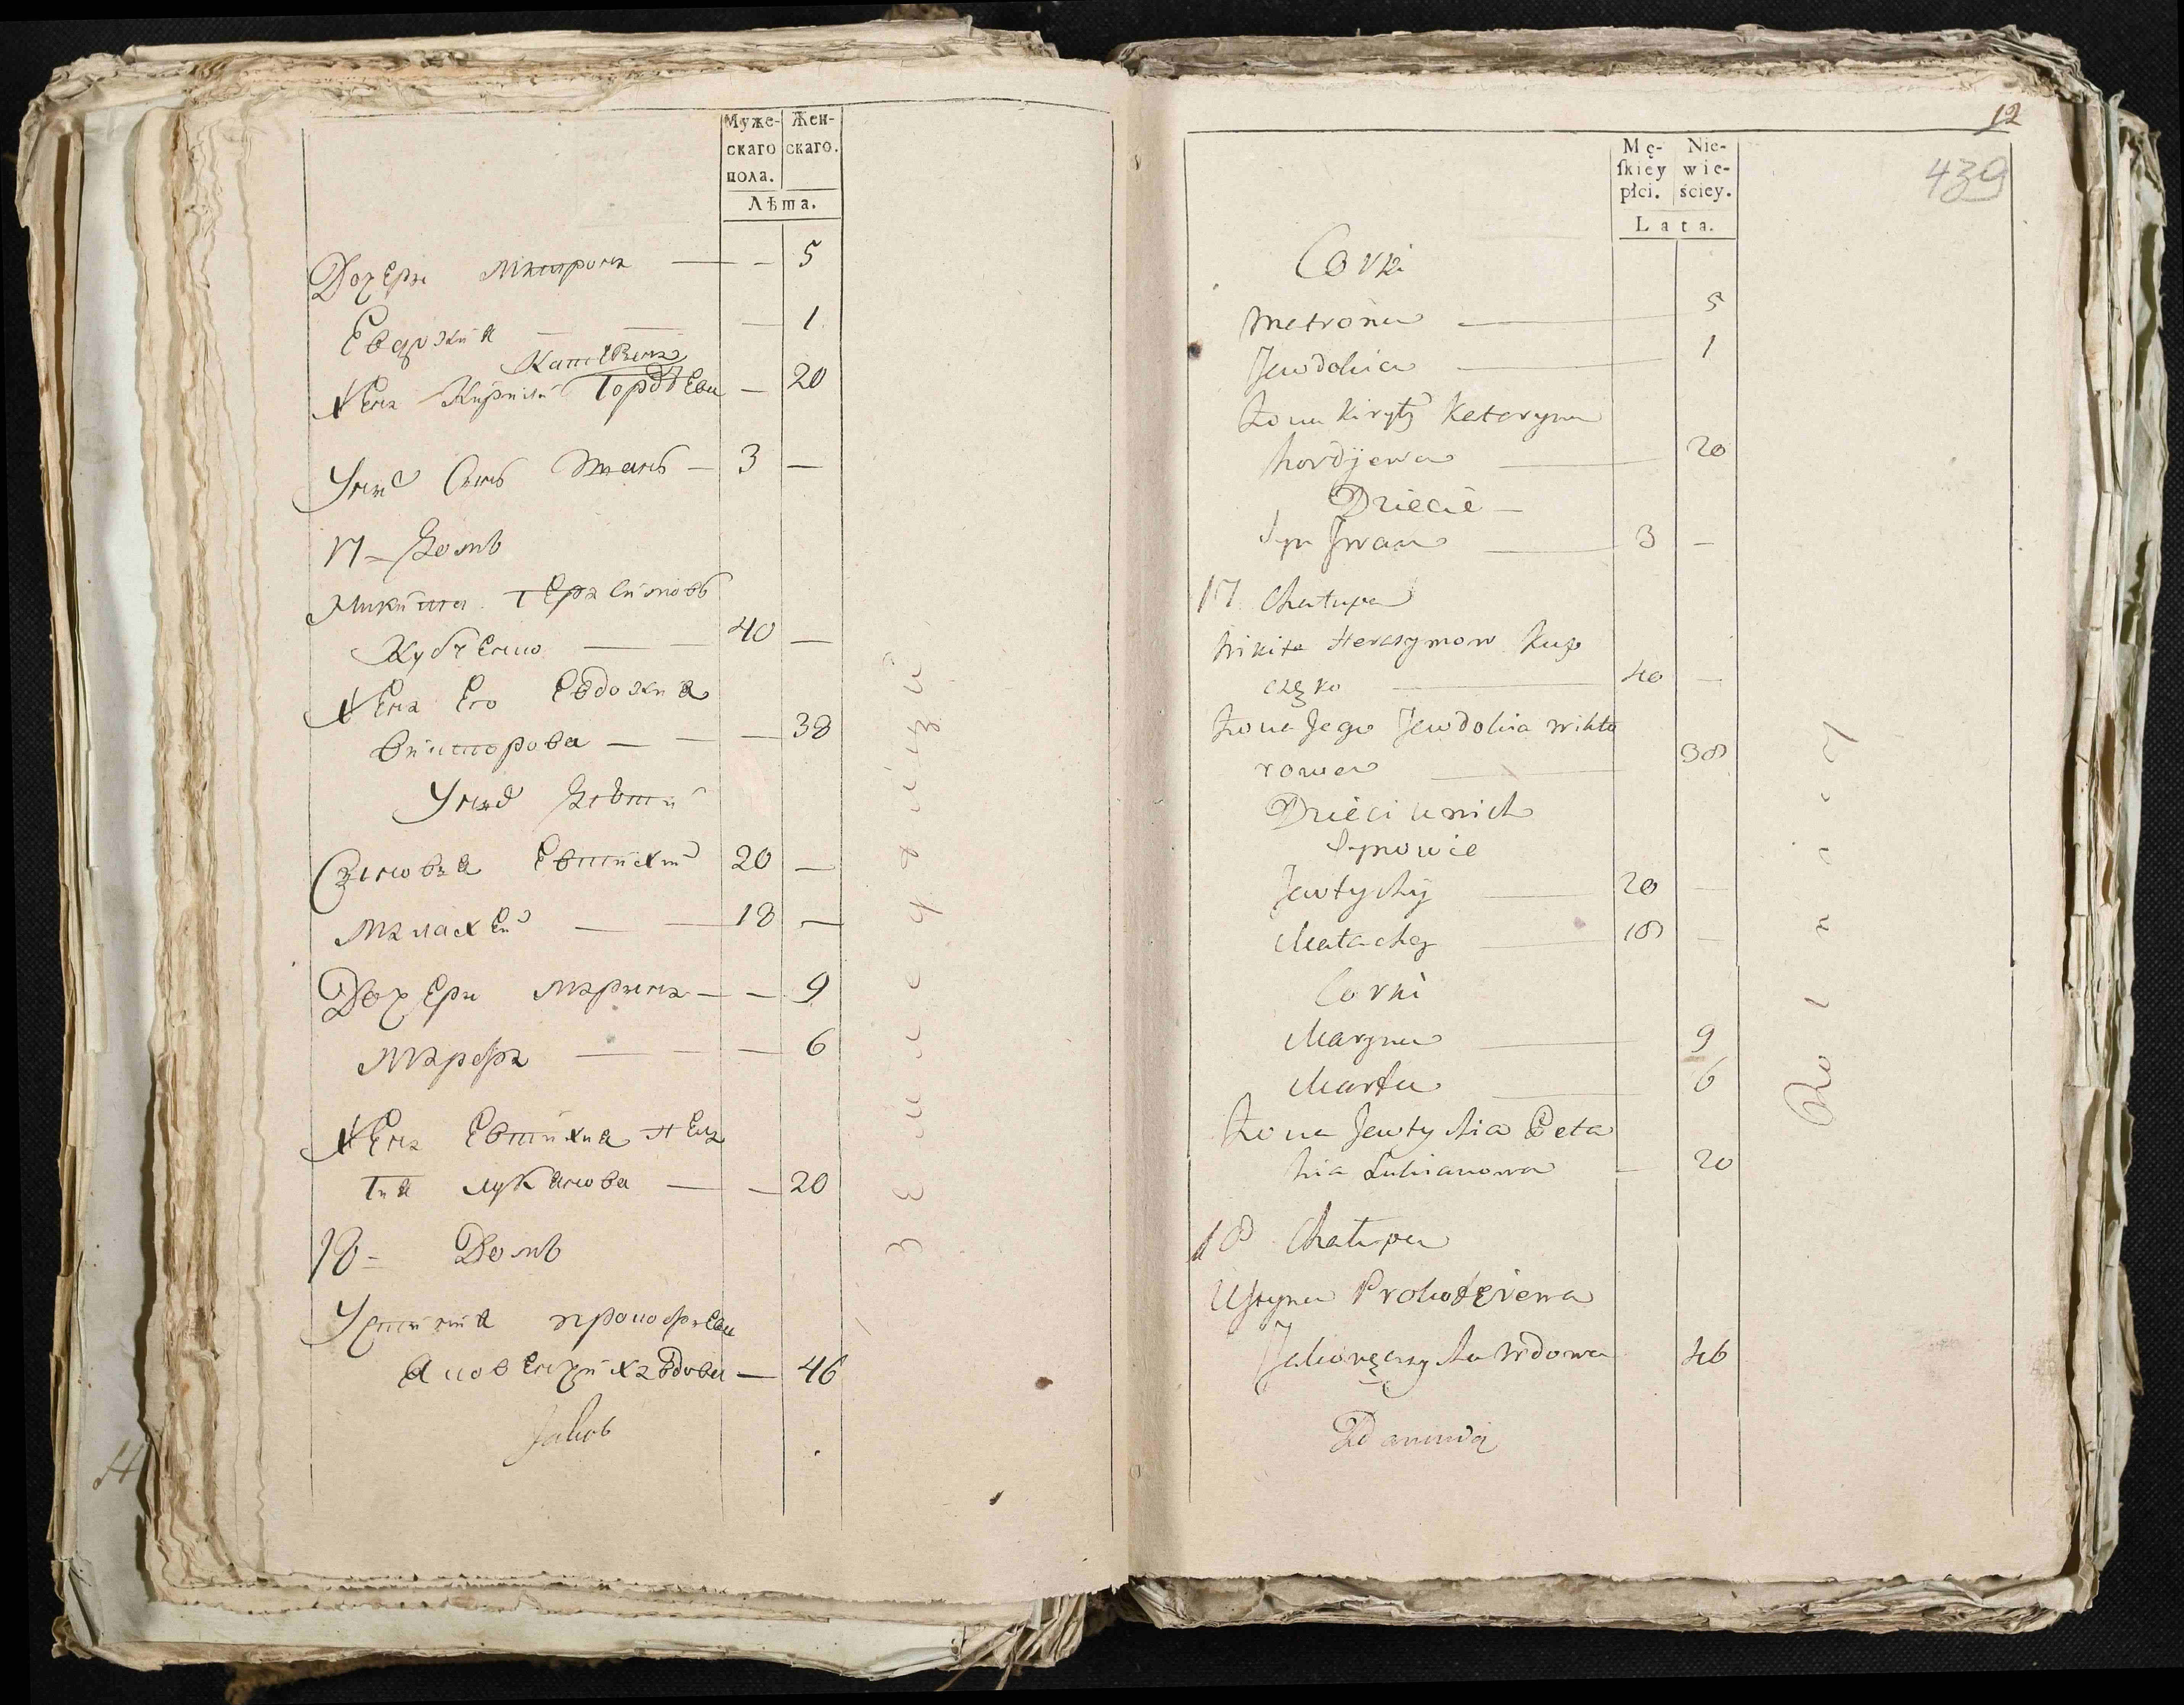 Муже- Жен-
скаго скаго.
пола.
Лѣта.
Дочери Матрона — — 5
Евдокия — — — 1
Катерина
Жена Кирилы Гордѣева — 20
У них Сынъ Иванъ — 3 —
17 — Домъ
Микита Герасимовъ
Кубченко — — 40 —
Жена Его Евдокия
Викторова — — — 38
У них Дѣти
Сыновья Евтихий 20 —
Малахей — — 18 —
Дочери Марина — — 9
Марфа — — — 6
Жена Евтихия Пела
гия Лукянова — — 20
18 - Домъ
Устиния Прокофиева
Яковенчиха вдова — 46
Jakob
Землѣдѣлцы
12
439
Mę- Nie-
ſkiey wie-
płci. ściey.
Lata.
Corki
Metrona — 5
Jewdokia — 1
Żona Kiryły Kateryna
Hordijewa — 20
Dziecie —
Syn Jwan — 3 —
17 Chałupa
Mikita Herasymow Kub
częko — 40 —
Żona Jego Jewdokia Wikto
rowa — 38
Dzieci u nich
Synowie
Jewtychy — 20 —
Małachy — 18 —
Corki
Maryna — 9
Marfa — 6
Żona Jewtychia Pela
hia Łukianowa — 20
18 Chałupa
Ustyna Prokofiewa
Jakowęczycha wdowa 46
Rolnicy